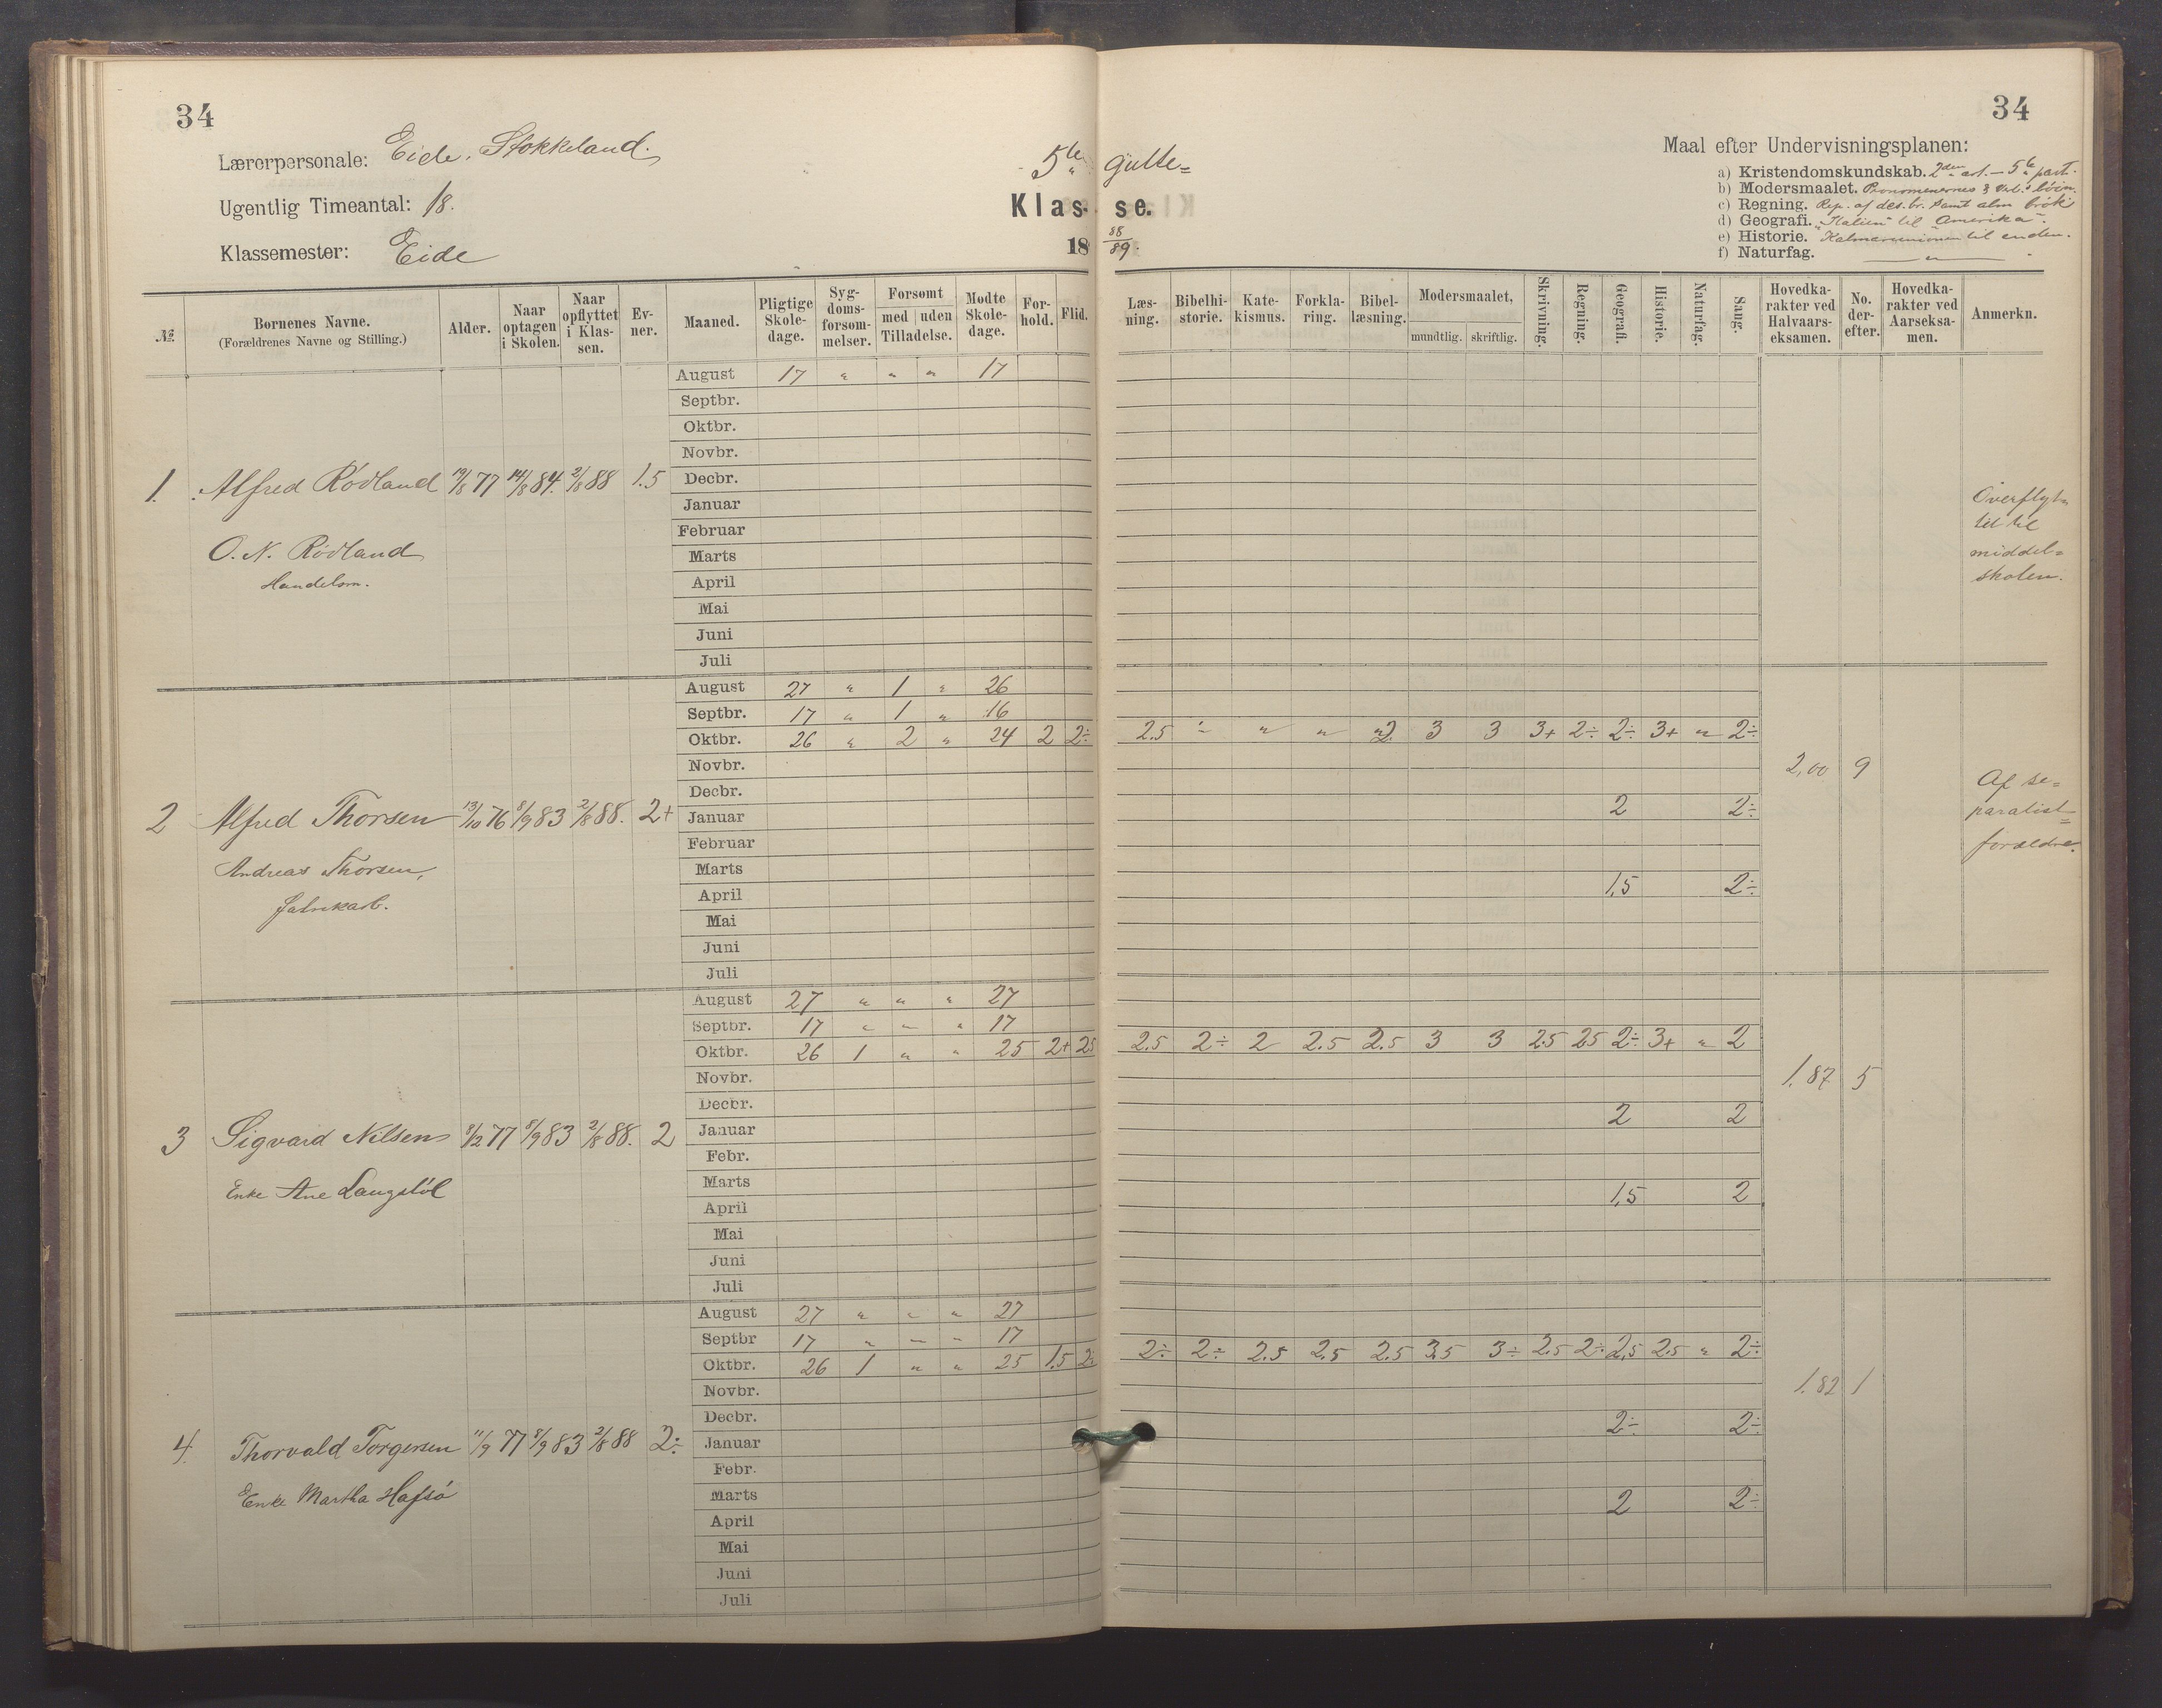 34
34
Lærerpersonale: Eide. Stokkeland.
Ugentlig Timeantal: 18.
Klassemester: Eide
5te Gutte=
Klasse.
18 88/89.
Maal efter Undervisningsplanen:
a) Kristendomskundskab. 2den art. — 5te part.
b) Modersmaalet. Pronomenernes & Verb.s böin.
c) Regning. Rep. af des. br. samt alm brök
d) Geografi. "Italien" til "Amerika".
e) Historie. Kalmarunionen til enden.
f) Naturfag. — " —
№ Børnenes Navne. (Forældrenes Navne og Stilling.) Alder. Naar optagen i Skolen. Naar opflyttet i Klassen. Evner. Maaned. Pligtige Skoledage. Sygdomsforsømmelser. Forsømt med uden Tilladelse. Mødte Skoledage. Forhold. Flid. Læsning. Bibelhistorie. Katekismus. Forklaring. Bibellæsning. Modersmaalet, mundtlig. skriftlig. Skrivning. Regning. Geografi. Historie. Naturfag. Sang. Hovedkarakter ved Halvaarseksamen. No. derefter. Hovedkarakter ved Aarseksamen. Anmerkn.
August 17 " " " 17
Septbr.
Oktbr.
Novbr.
1. Alfred Rødland 19/8 77 14/8 84. 2/8 88 1.5 Decbr.
Januar
Februar
O. N. Rødland Marts
Handelsm. April
Mai
Juni
Juli
Overflyt=
tet til
middel=
skolen.
August 27 " 1 " 26
Septbr. 17 " 1 " 16
Oktbr. 26 " 2 " 24 2 2÷ 2.5 " " " 2. 3 3 3+ 2÷ 2÷ 3+ " 2÷
Novbr. 2,00 9
Decbr. 2 2÷
2 Alfred Thorsen 13/10 76 8/9 83 2/8 88. 2+ Januar
Februar
Andreas Thorsen, Marts
1,5 2÷
Fabrikarb. April
Mai
Juni
Juli
Af se=
paratist=
forældre.
August 27 " " " 27
Septbr. 17 " " " 17
Oktbr. 26 1 " " 25 2+ 2.5 2.5 2÷ 2 2.5 2.5 3 3 2.5 2.5 2÷ 3+ " 2
Novbr. 1.87 5
Decbr. 2 2
3 Sigvard Nilsen 8/12 77 8/9 83 2/8 88. 2 Januar
Febr.
Enke Ane Laugstöl Marts
1,5 2
April
Mai
Juni
Juli
August 27 " " " 27
Septbr 17 " " " 17
Oktbr. 26 1 " " 25 1.5 2÷ 2÷ 2÷ 2.5 2.5 2.5 3.5 3÷ 2.5 2÷ 2.5 2.5 " 2÷
Novbr. 1.82 1
Decbr. 2÷ 2÷
4. Thorvald Torgersen 11/9 77 8/9 83 2/8 88 2÷ Januar
Febr.
Enke Martha Hafsö Marts
2 2÷
April
Mai
Juni
Juli